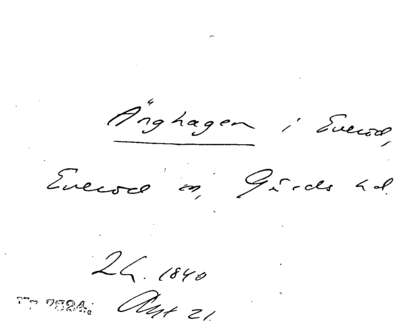 Änghagen i Everöd,
Everöd sn, Gärds hd.
Lh. 1840
Akt 21.